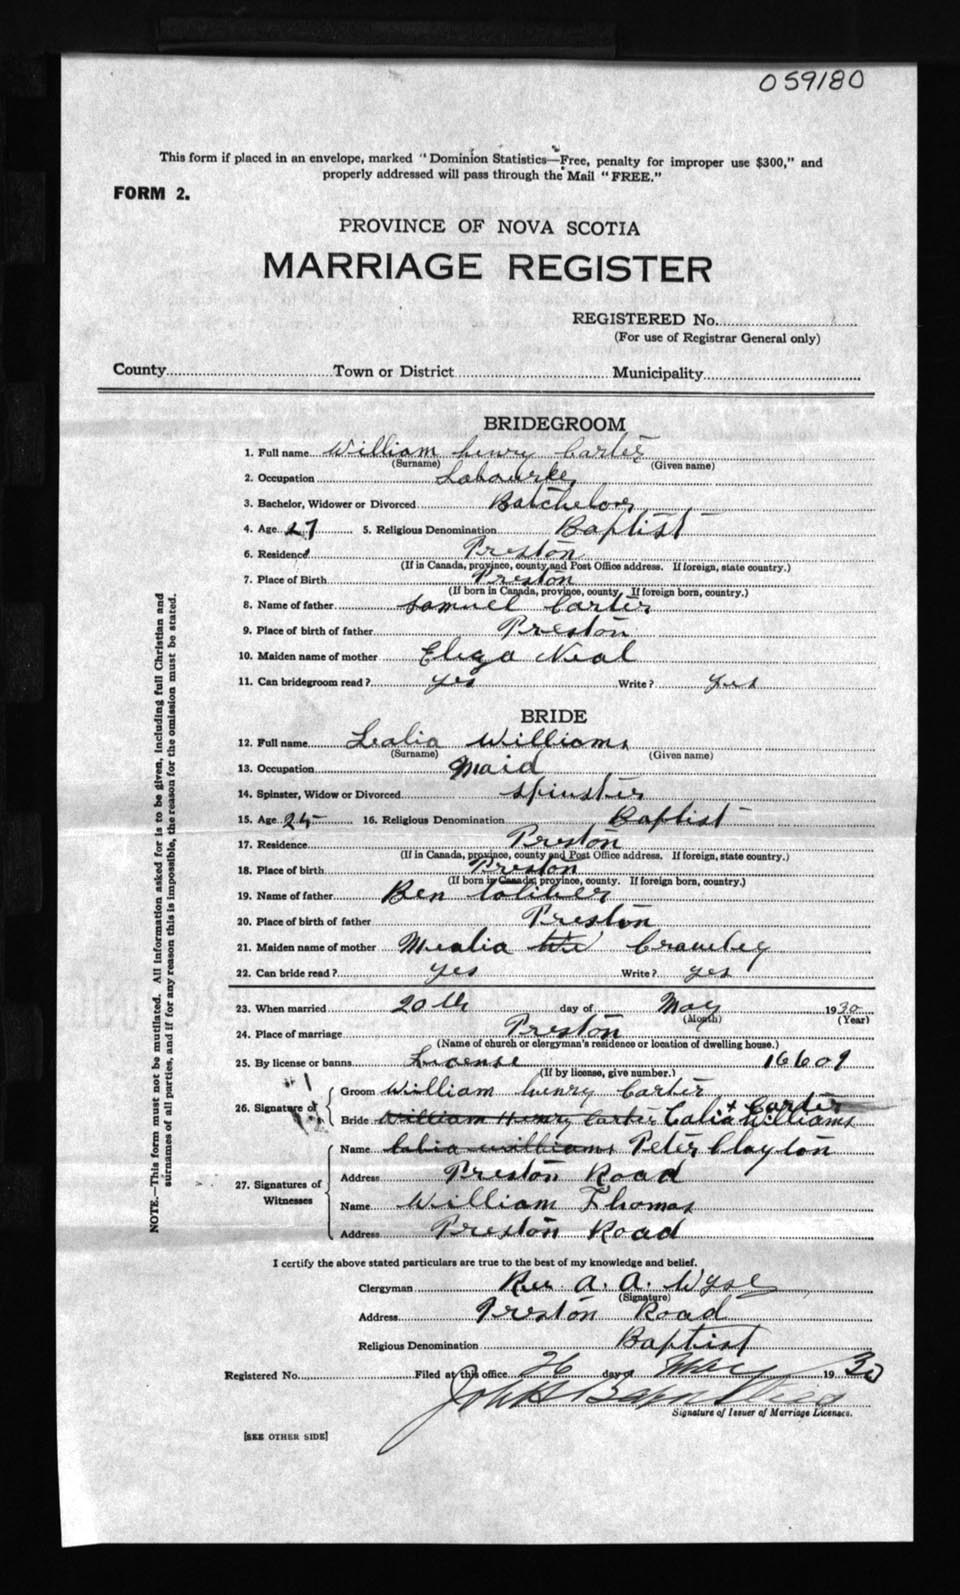 059180
This form if placed in an envelope, marked "Dominion Statistics—Free, penalty for improper use $300," and
properly addressed will pass through the Mail "FREE."
FORM 2.
PROVINCE OF NOVA SCOTIA
MARRIAGE REGISTER
REGISTERED No.
(For use of Registrar General only)
County Town or District Municipality
BRIDEGROOM
1. Full name William henry Carter
(Surname) (Given name)
2. Occupation
3. Bachelor, Widower or Divorced Batchelor
4. Age 27 5. Religious Denomination Baptist
6. Residence Preston
(If in Canada, province, county and Post Office address. If foreign, state country.)
7. Place of Birth Preston
(If born in Canada, province, county. If foreign born, country.)
8. Name of father Samuel Carter
9. Place of birth of father Preston
10. Maiden name of mother Neal
11. Can bridegroom read? yes Write? yes
BRIDE
12. Full name Lealia Williams
(Surname) (Given name)
13. Occupation Maid
14. Spinster, Widow or Divorced spinster
15. Age 24 16. Religious Denomination Baptist
17. Residence Preston
(If in Canada, province, county and Post Office address. If foreign, state country.)
18. Place of birth Preston
(If born in Canada, province, county. If foreign born, country.)
19. Name of father Ben
20. Place of birth of father Preston
21. Maiden name of mother Mealia
22. Can bride read? yes Write? yes
23. When married 20th day of May 1930
(Month) (Year)
24. Place of marriage Preston
(Name of church or clergyman's residence or location of dwelling house.)
25. By license or banns License 16609
(If by license, give number.)
26. Signature of
Groom William henry Carter
+ Carter
Bride William Henry Carter Calia Williams
27. Signatures of Witnesses
Name Calia williams Peter Clayton
Address Preston Road
Name William Thomas
Address Preston Road
I certify the above stated particulars are true to the best of my knowledge and belief.
Clergyman Rev A. A. Wyse
(Signature)
Address Preston Road
Religious Denomination Baptist
Registered No. Filed at this office 26 day of May 1930
John
Signature of Issuer of Marriage Licenses.
[SEE OTHER SIDE]
NOTE.—This form must not be mutilated. All information asked for is to be given, including full Christian and
surnames of all parties, and if for any reason this is impossible, the reason for the omission must be stated.